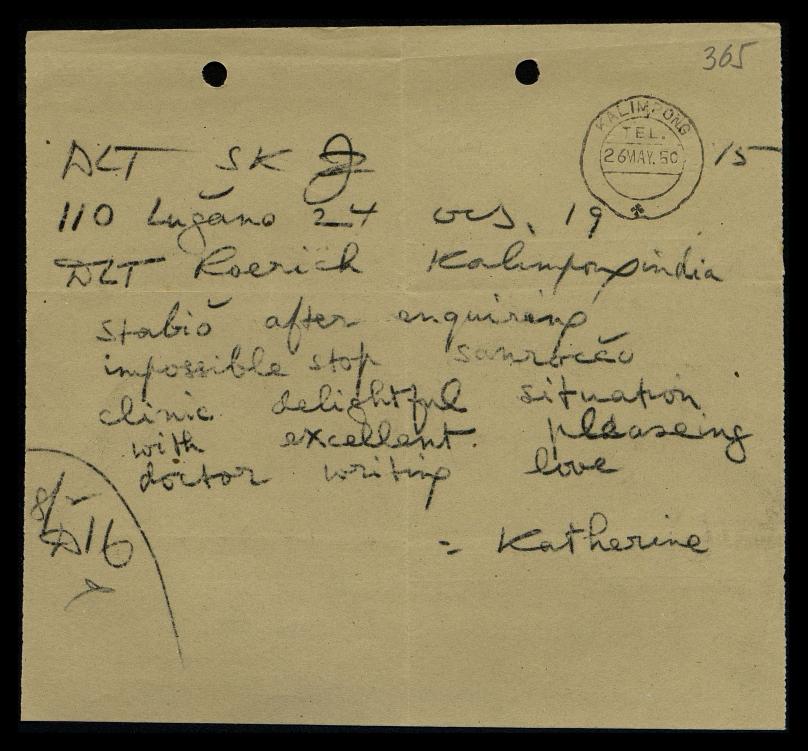 365
KALIMPONG
TEL.
26MAY.50
15
DLT SK
110 Lugano 24 ocs. 19
DLT Roerich Kalimpongindia
stabio after enquiring
impossible stop sanrocco
clinic delightful situation
with excellent. pleaseing
doctor writing love
= Katherine
8/
D16